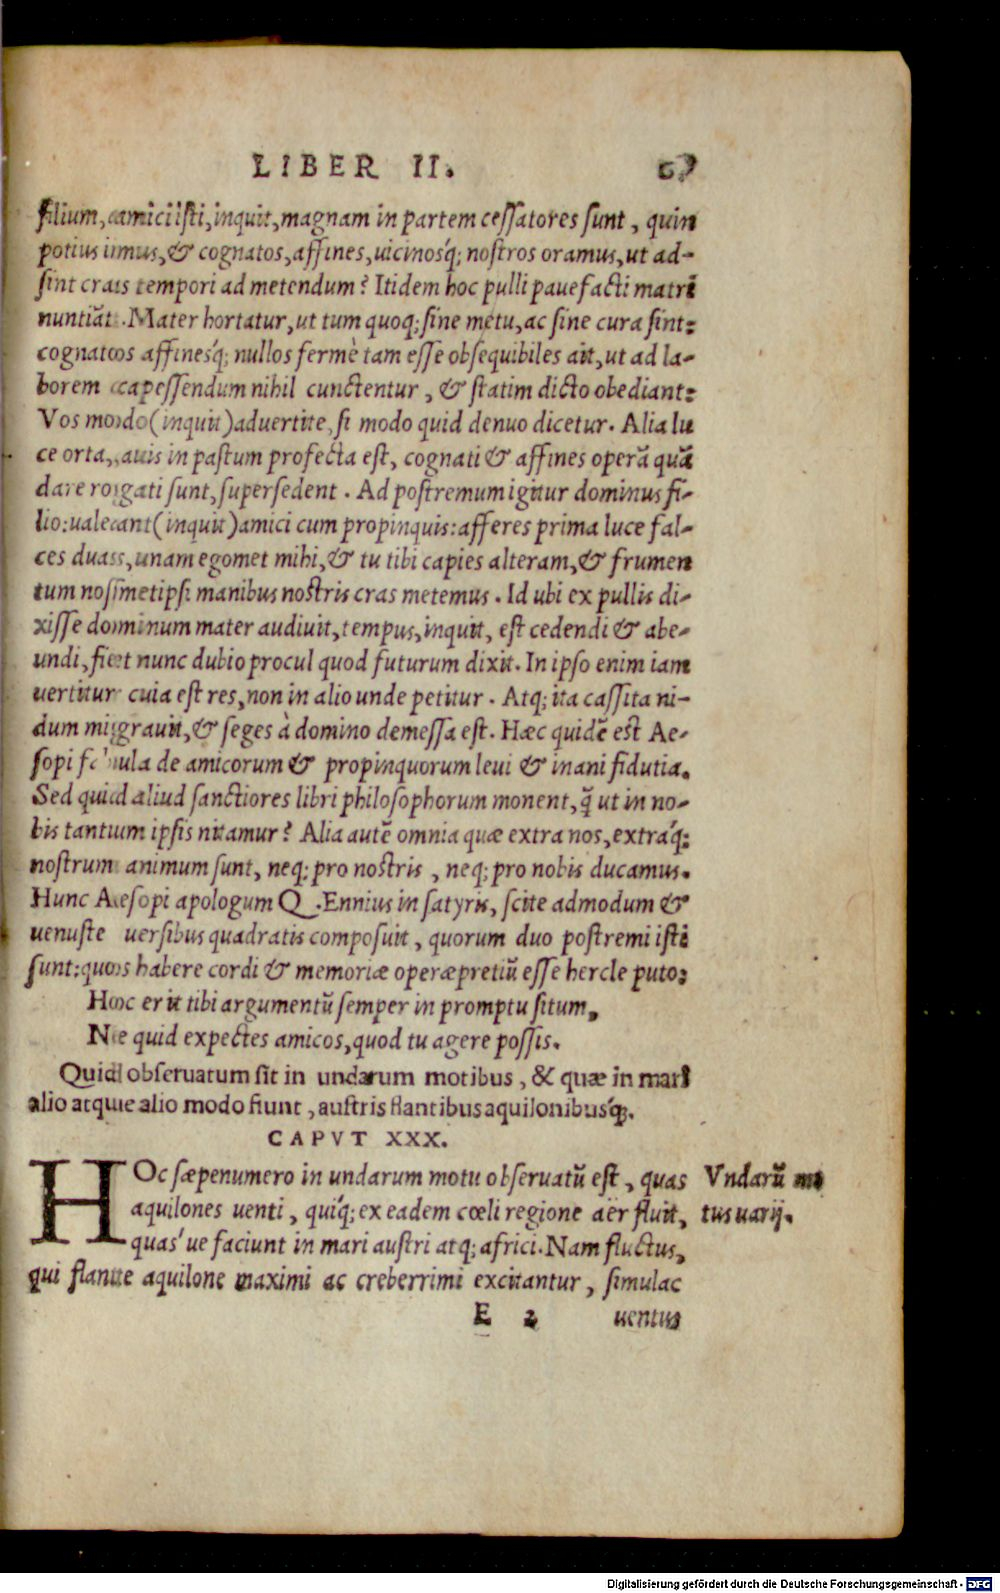 LIBER II. 67
filium, amici isti, inquit, magnam in partem cessatores sunt, quin
potius imus, & cognatos, affines, uicinosq́; nostros oramus, ut ad-
sint cras tempori ad metendum? Itidem hoc pulli pauefacti matri
nuntiāt. Mater hortatur, ut tum quoq; sine metu, ac sine cura sint:
cognatos affinesq́; nullos fermè tam esse obsequibiles ait, ut ad la-
borem capessendum nihil cunctentur, & statim dicto obediant:
Vos modo (inquit) aduertite, si modo quid denuo dicetur. Alia lu
ce orta, auis in pastum profecta est, cognati & affines operā quā
dare rogati sunt, supersedent. Ad postremum igitur dominus fi-
lio: ualeant (inquit) amici cum propinquis: afferes prima luce fal-
ces duas, unam egomet mihi, & tu tibi capies alteram, & frumen
tum nosmetipsi manibus nostris cras metemus. Id ubi ex pullis di-
xisse dominum mater audiuit, tempus, inquit, est cedendi & abe-
undi, fiet nunc dubio procul quod futurum dixit. In ipso enim iam
uertitur cuia est res, non in alio unde petitur. Atq; ita cassita ni-
dum migrauit, & seges à domino demessa est. Hæc quidē est Ae-
sopi fabula de amicorum & propinquorum leui & inani fidutia.
Sed quid aliud sanctiores libri philosophorum monent, q̄ ut in no-
bis tantum ipsis nitamur? Alia autē omnia quæ extra nos, extraq́;
nostrum animum sunt, neq; pro nostris, neq; pro nobis ducamus.
Hunc Aesopi apologum Q. Ennius in satyris, scite admodum &
uenuste uersibus quadratis composuit, quorum duo postremi isti
sunt: quos habere cordi & memoriæ operæpretiū esse hercle puto:
Hoc erit tibi argumentū semper in promptu situm,
Ne quid expectes amicos, quod tu agere possis.
Quid obseruatum sit in undarum motibus, & quæ in mari
alio atque alio modo fiunt, austris flantibus aquilonibusq́;.
CAPVT XXX.
HOc sæpenumero in undarum motu obseruatū est, quas
aquilones uenti, quiq́; ex eadem cœli regione aër fluit,
quas'ue faciunt in mari austri atq; africi. Nam fluctus,
qui flante aquilone maximi ac creberrimi excitantur, simulac
Vndarū mo
tus uarij.
E 2 uentus
Digitalisierung gefördert durch die Deutsche Forschungsgemeinschaft - DFG